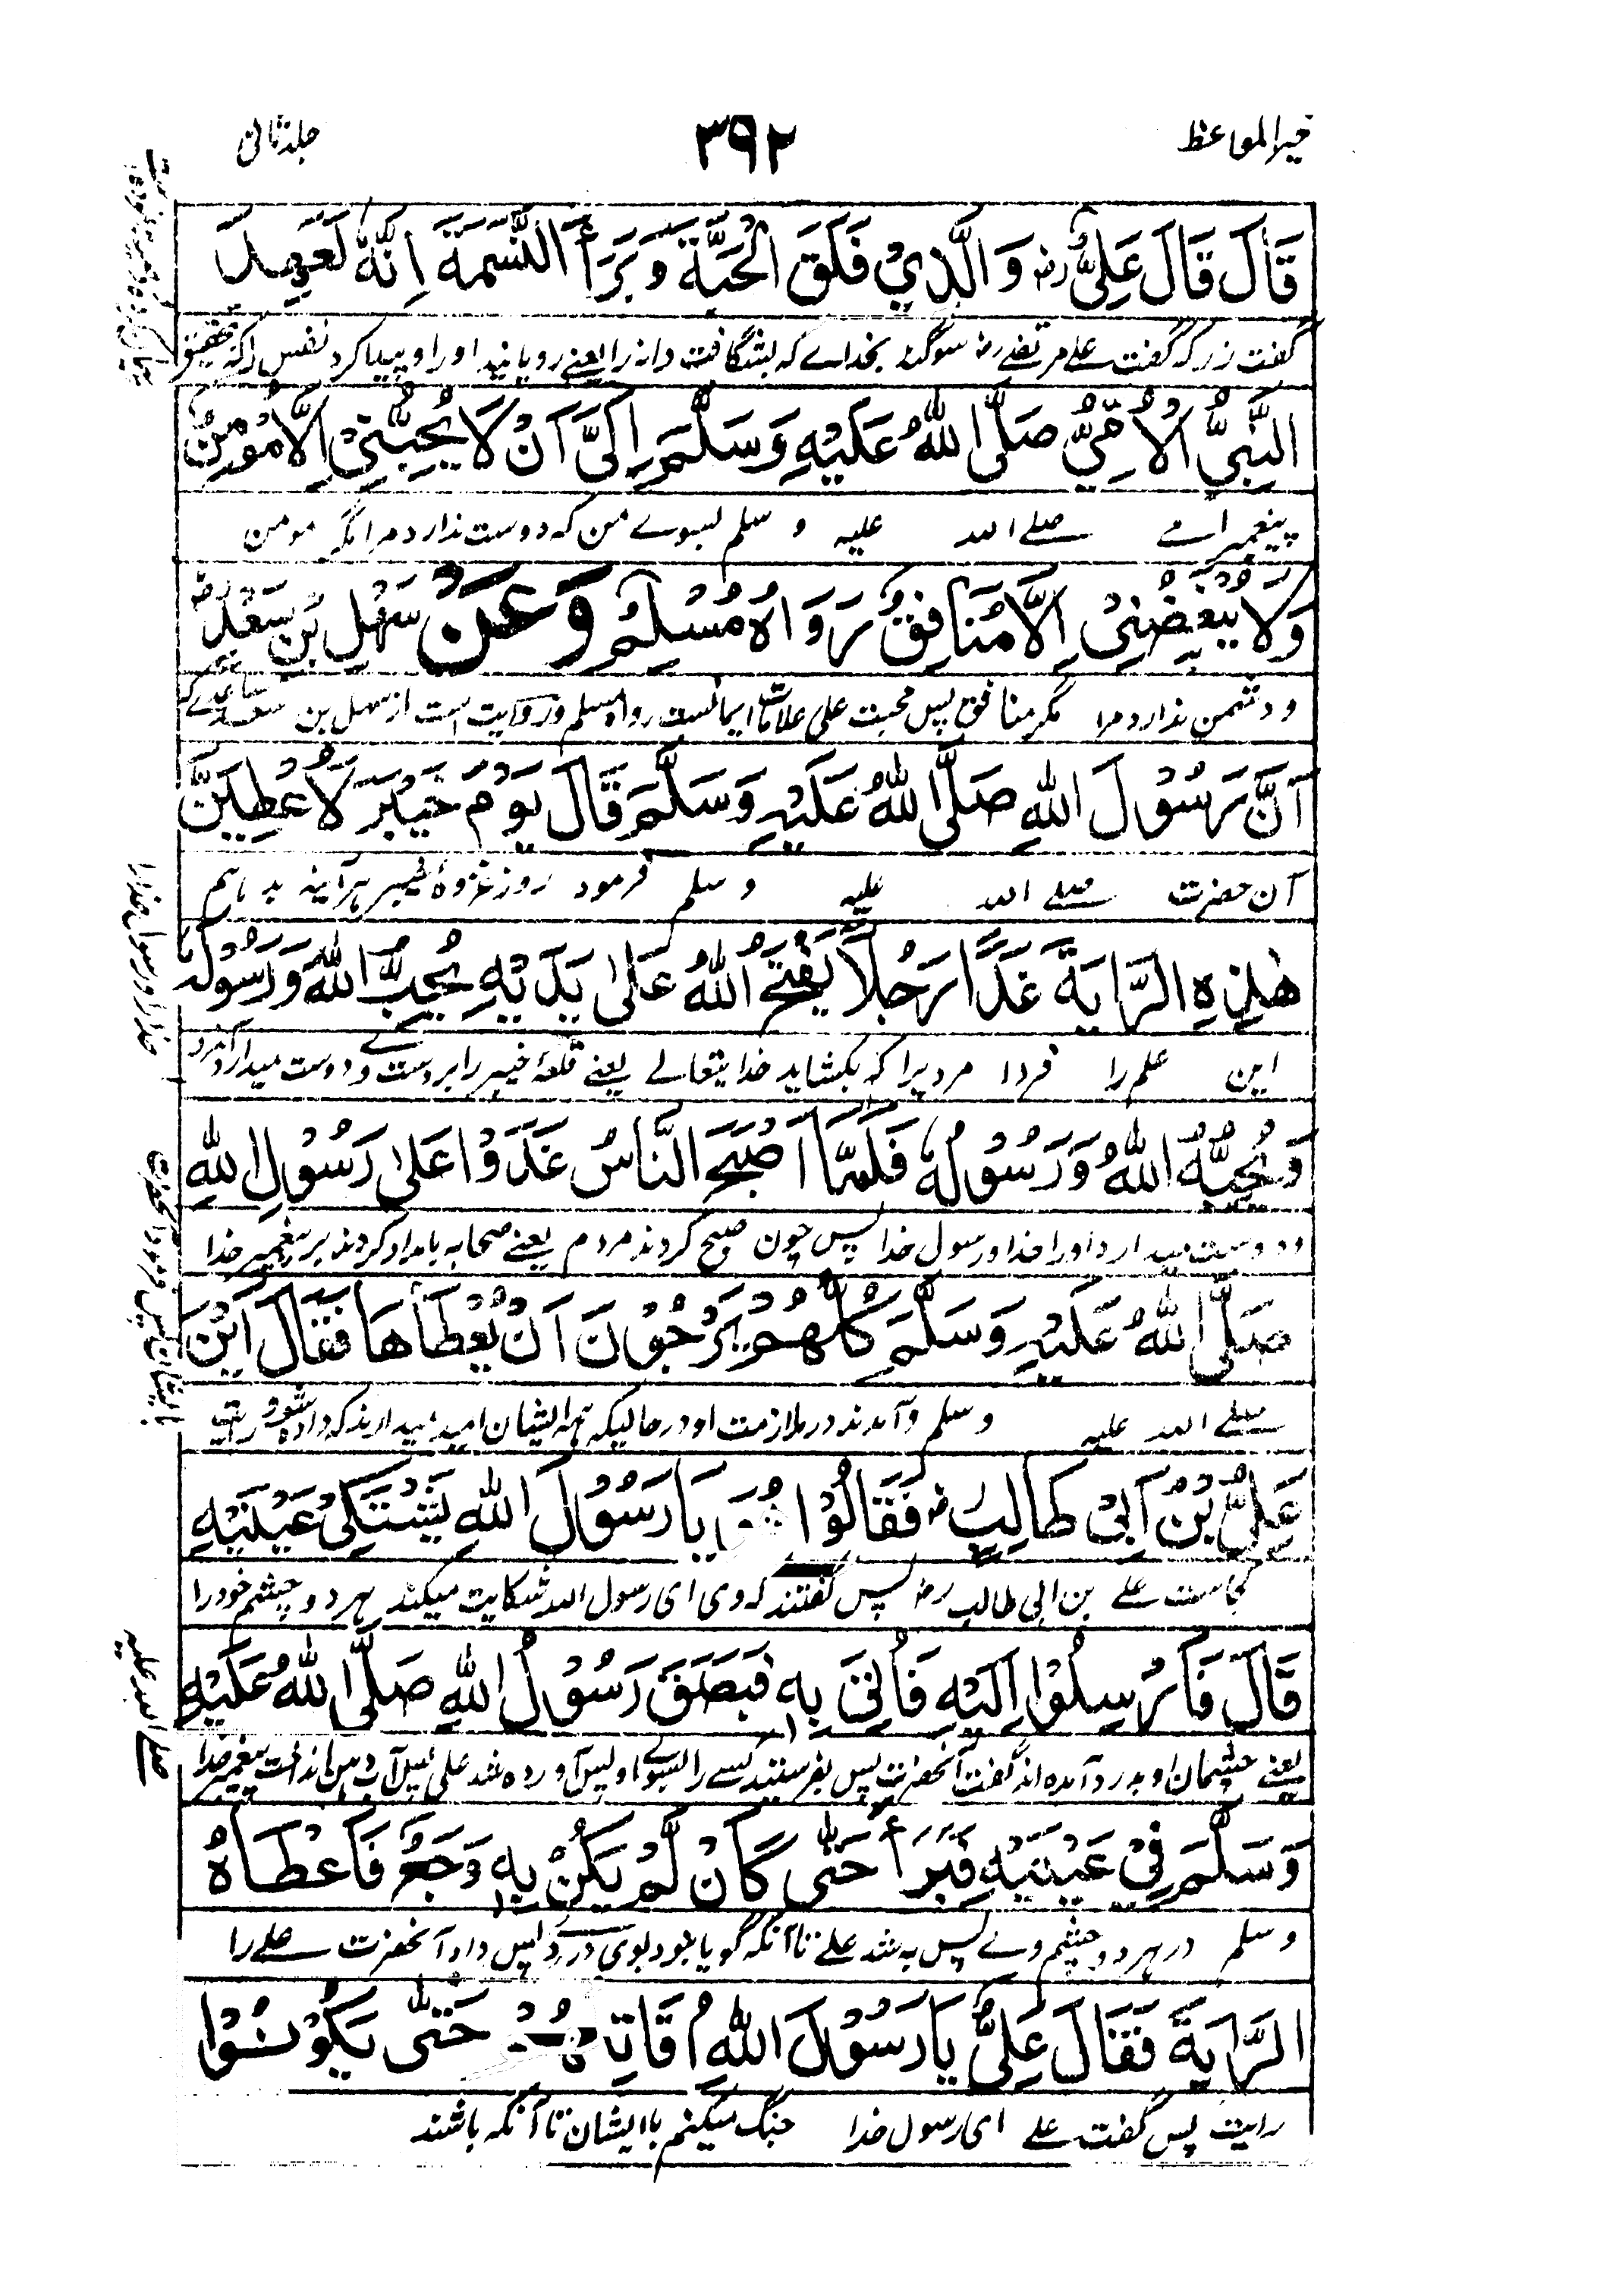 خیر المواعظ
۳۹۲
جلد ثانی
قَالَ قَالَ عَلِيٌّ رض وَالَّذِيْ فَلَقَ الْحَبَّةَ وَبَرَأَ النَّسَمَةَ اِنَّهُ لَعَهِدَ
گفت زر که گفت علے مرتضے رض سوگند بخداے که بشگافت دانه را یعنے رویانید او را و پیدا کرد نفس را که تحقیق
النَّبِيُّ الْاُمِّيُّ صَلَّى اللّٰهُ عَلَيْهِ وَسَلَّمَ اِلَيَّ اَنْ لَا يُحِبَّنِيْ اِلَّا مُؤْمِنٌ
پیغمبر امے صلے الله علیه و سلم بسوے من که دوست ندارد مرا مگر مومن
وَلَا يُبْغِضُنِيْ اِلَّا مُنَافِقٌ رَوَاهُ مُسْلِمٌ وَعَنْ سَهْلِ بْنِ سَعْدٍ رض
و دشمن ندارد مرا مگر منافق پس محبت علی علامت ایمانست رواه مسلم و روایت است از سهل بن سعد ساعدے که
اَنَّ رَسُوْلَ اللّٰهِ صَلَّى اللّٰهُ عَلَيْهِ وَسَلَّمَ قَالَ يَوْمَ خَيْبَرَ لَاُعْطِيَنَّ
آن حضرت صلے الله علیه و سلم فرمود روز غزوۀ خیبر هر آینه بدهم
هٰذِهِ الرَّايَةَ غَدًا رَجُلًا يَفْتَحُ اللّٰهُ عَلٰى يَدَيْهِ يُحِبُّ اللّٰهَ وَرَسُوْلَهُ
این علم را فردا مردیرا که بکشاید خدایتعالے یعنے قلعۀ خیبر را بر دست وے دوست میدارد آنمرد
وَيُحِبُّهُ اللّٰهُ وَرَسُوْلُهُ فَلَمَّا اَصْبَحَ النَّاسُ غَدَوْا عَلٰى رَسُوْلِ اللّٰهِ
و دوست میدارد او را خدا و رسول خدا پس چون صبح کردند مردم یعنے صحابه بامداد کردند بر پیغمبر خدا
صَلَّى اللّٰهُ عَلَيْهِ وَسَلَّمَ كُلُّهُمْ يَرْجُوْنَ اَنْ يُعْطَاهَا فَقَالَ اَيْنَ
صلے الله علیه و سلم و آمدند در ملازمت او در حالیکه همه ایشان امید میدارند که داده شود رایت
عَلِيُّ بْنُ اَبِيْ طَالِبٍ رض فَقَالُوْا هُوَ يَا رَسُوْلَ اللّٰهِ يَشْتَكِيْ عَيْنَيْهِ
کجاست علے بن ابی طالب رض پس گفتند که وی ای رسول الله شکایت میکند هر دو چشم خود را
قَالَ فَاَرْسِلُوْا اِلَيْهِ فَاُتِيَ بِهِ فَبَصَقَ رَسُوْلُ اللّٰهِ صَلَّى اللّٰهُ عَلَيْهِ
یعنے چشمان او بدرد آمده اند گفت آنحضرت پس بفرستید کسے را بسوے او پس آورده شد علی پس آب دهن انداخت پیغمبر خدا
وَسَلَّمَ فِيْ عَيْنَيْهِ فَبَرَأَ حَتّٰى كَاَنْ لَمْ يَكُنْ بِهِ وَجَعٌ فَاَعْطَاهُ
و سلم در هر دو چشم وے پس به شد علے تا آنکه گویا نبود بوی درد پس داد آنحضرت علے را
الرَّايَةَ فَقَالَ عَلِيٌّ يَا رَسُوْلَ اللّٰهِ اُقَاتِلُهُمْ حَتّٰى يَكُوْنُوْا
رایت پس گفت علے ای رسول خدا جنگ میکنم با ایشان تا آنکه باشند
خدا را و رسول خدا را
صلے الله علیه